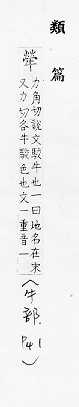 類篇
犖 力角切說文駁牛也一曰地名在宋
又力切各牛駁色也文一重音一
(牛部 P41)